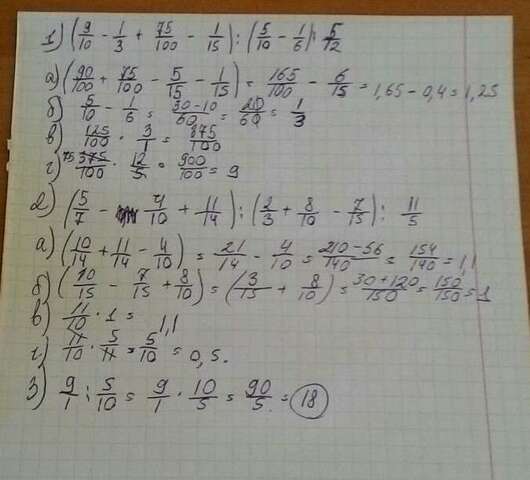 1) (9/10 - 1/3 + 75/100 - 1/15) : (5/10 - 1/6) : 5/12
а) (90/100 + 75/100 - 5/15 - 1/15) = 165/100 - 6/15 = 1,65 - 0,4 = 1,25
б) 5/10 - 1/6 = 30-10/60 = 20/60 = 1/3
в) 125/100 · 3/1 = 375/100
г) 375/100 · 12/5 = 900/100 = 9
2) (5/7 - 4/10 + 11/14) : (2/3 + 8/10 - 7/15) : 11/5
а) (10/14 + 11/14 - 4/10) = 21/14 - 4/10 = 210-56/140 = 154/140 = 1,1
б) (10/15 - 7/15 + 8/10) = (3/15 + 8/10) = 30+120/150 = 150/150 = 1
в) 11/10 · 1 = 1,1
г) 11/10 · 5/11 = 5/10 = 0,5.
3) 9/1 : 5/10 = 9/1 · 10/5 = 90/5 = 18